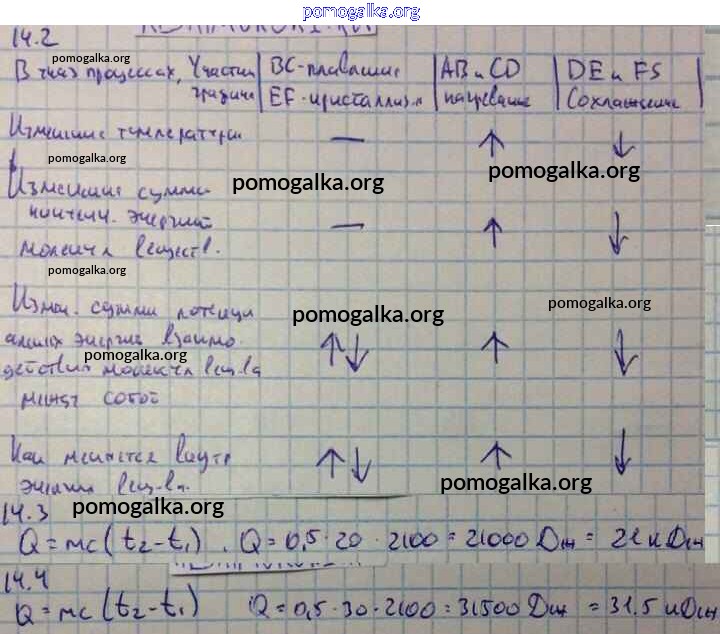 pomogalka.org
14.2
pomogalka.org
В такз процессах, Участки | BC-плавление | AB и CD | DE и FS
графика | EF-кристаллиз-я | нагревание | Сохлаждение
Изменение температуры — ↑ ↓
pomogalka.org
pomogalka.org
Изменение суммы pomogalka.org
кинетич. энергий — ↑ ↓
молекул веществ.
pomogalka.org
Измен. суммы потенци pomogalka.org pomogalka.org
альных энергий взаимо ↑↓ ↑ ↓
pomogalka.org
действия молекул вещ-ва
между собой
Как меняется внутр ↑↓ ↑ ↓
энергия вещ-ва. pomogalka.org
14.3 pomogalka.org
Q=mc(t₂-t₁). Q=0,5·20·2100=21000 Дж=21 кДж
14.4
Q=mc(t₂-t₁) Q=0,5·30·2100=31500 Дж=31.5 кДж